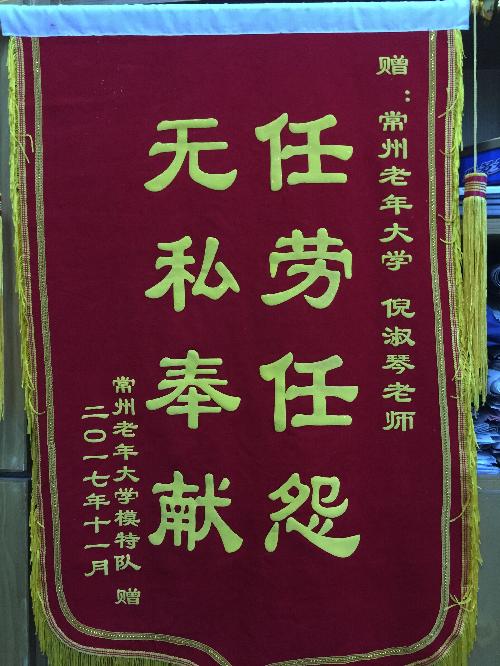 赠：常州老年大学 倪淑琴老师
任劳任怨
无私奉献
常州老年大学模特队 赠
二〇一七年十一月